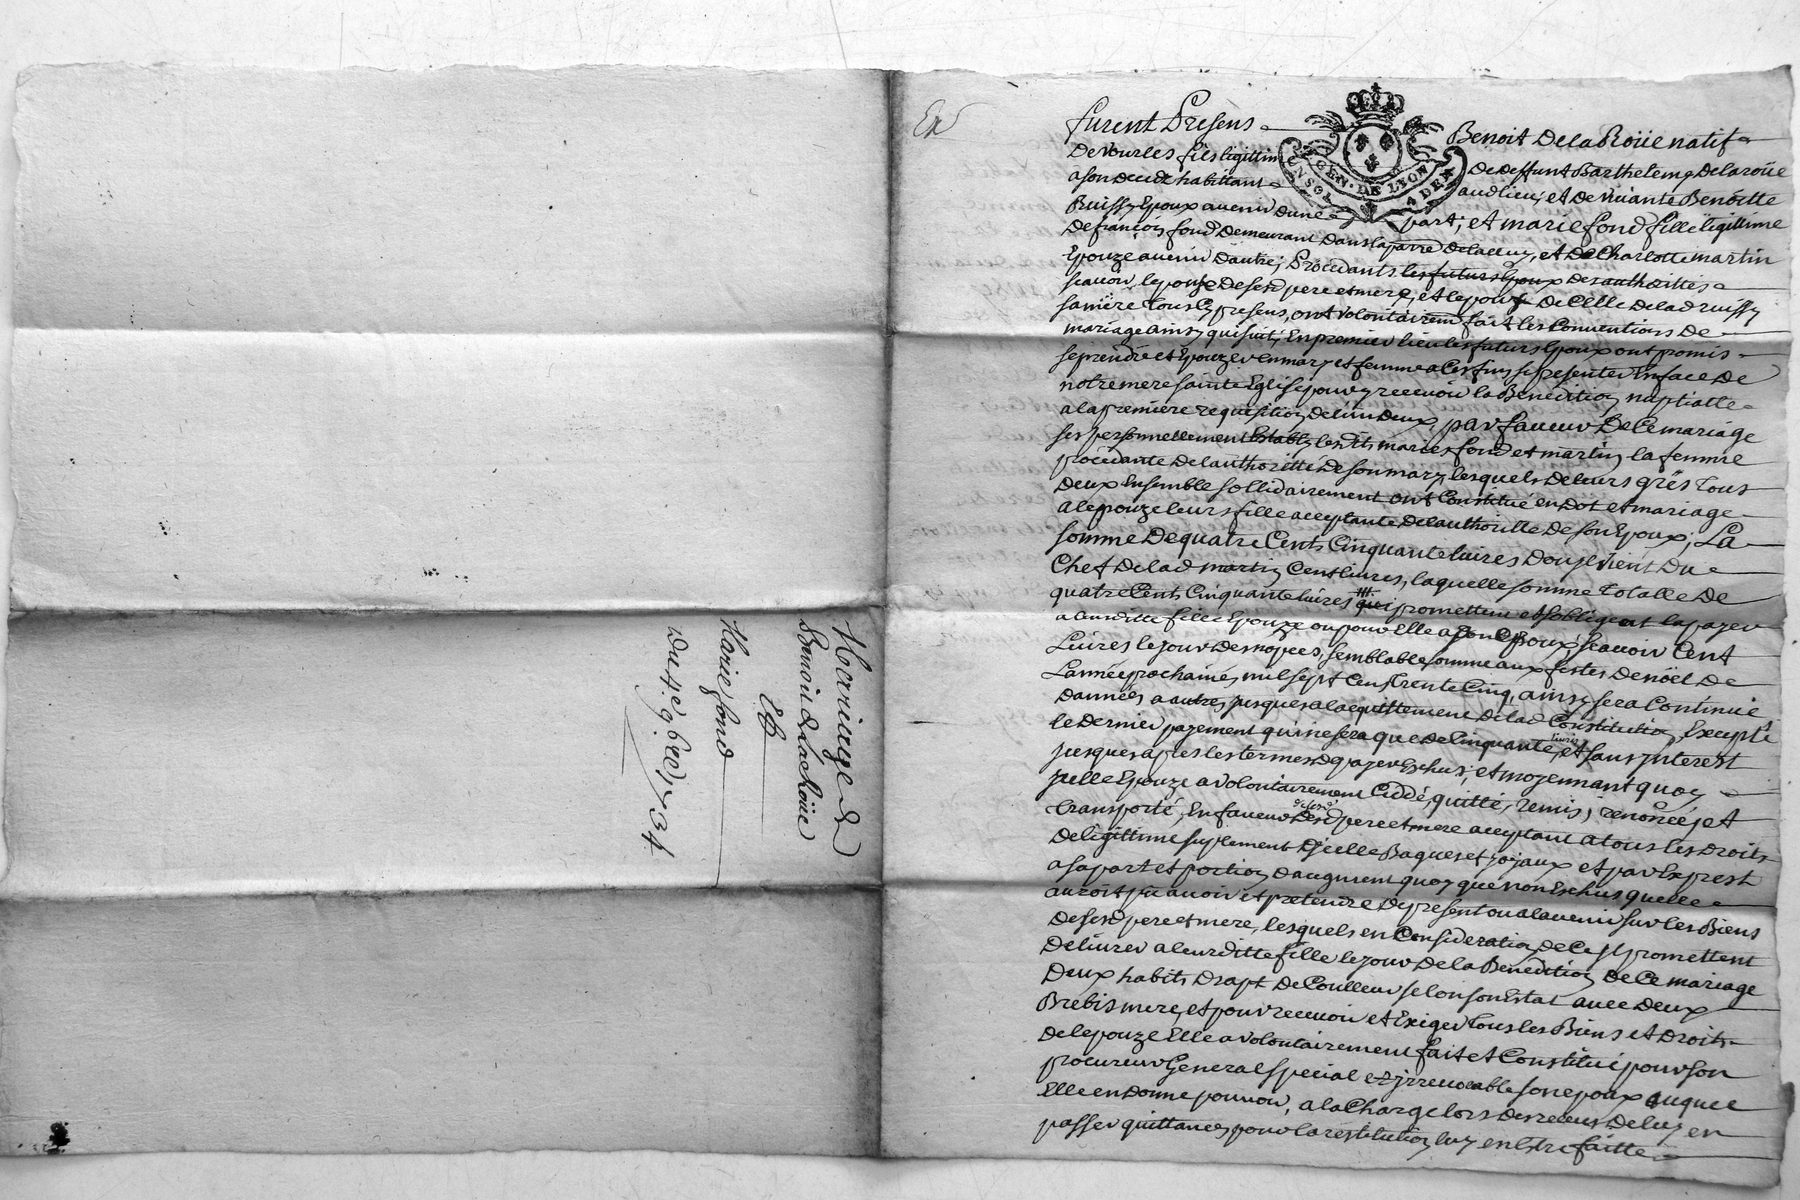 Mariage de
Benoit de la Roüe
Et
Marie fond
Du 4.e 9.bre 1734
En
furent Presens Benoit De la Roüe natif
De Vourles fils legittime De Deffunt Barthelemy Delaroüe
a son decedz habittant aud lieu, et De viuante Benoitte
Buissy Epoux auenir Dune part, et marie fond fille legittime
De françois fond Demeurant Dans la parre De et De Charlotte martin
Epouze auenir Dautre, Procedants les futurs Epoux Des authorittés
scauoir lepouze De sesd pere et mere, et lepoux De Celle De lad Buissy
sa mere Tous Cy presens, ont volontairem fait les Conuentions De
mariage ainsy qui suit, En premier lieu les futurs Epoux ont promis
se prendre et Epouzer en mary et femme a Ces fins se presenter En face De
notre mere sainte Eglise pour y receuoir la Benediction nuptialle
a la premiere requisition De lun Deux, par faueur De Ce mariage
ses personnellement Estably lesdits mariés fond et martin, la femme
procedante De lauthoritté De son mary, lesquels De leurs grës Tous
Deux Ensemble sollidairement ont Constitué en Dot et mariage
a lepouze leur fille acceptante De lauthoritté De son Epoux, La
somme De quatre Cents Cinquante liures Dou jl vient Du
Chef De lad martin Cent liures, laquelle somme Totalle De
quatre Cents Cinquante liures jls promettent et sobligent la payer
a leurditte fille Epouze ou pour Elle a son Epoux, scauoir Cent
Liures le jour Des nopces, semblable somme aux festes De noël De
Lannée prochaine mil sept Cent Trente Cinq, ainsy sera Continué
Dannées a autres jusques a lacquittement De lad Constitution, Excepté
le Dernier payement qui ne sera que De Cinquante liures, et sans jnterest
jusques apres les termes De payer Escheus, et moyennant quoy
jcelle Epouze a volontairement Ceddé, quitté, remis, renoncé, et
Transporté, En faueur De sesd pere et mere acceptant a tous les Droits
De legittime suplement Djcelle Bagues et joyaux et par Exprest
a sa part et portion Daugment quoy que non Escheus quelle
auroit pû auoir et pretendre De present ou a lauenir sur les Biens
De sesd pere et mere, lesquels en Consideration De Ce jls promettent
Deliurer a leurditte fille le jour De la Benediction De Ce mariage
Deux habits Drapt De Coulleur selon son Estat auec Deux
Brebis mere, et pour receuoir et Exiger Tous les Biens et Droits
De lepouze Elle a volontairement fait et Constitué pour son
procureur General special et jrreuocable son epoux auquel
Elle en Donne pouuoir, a la Charge lors Des receus De luy en
passer quittances pour la restitution luy en Estre faitte
GEN. DE LYON